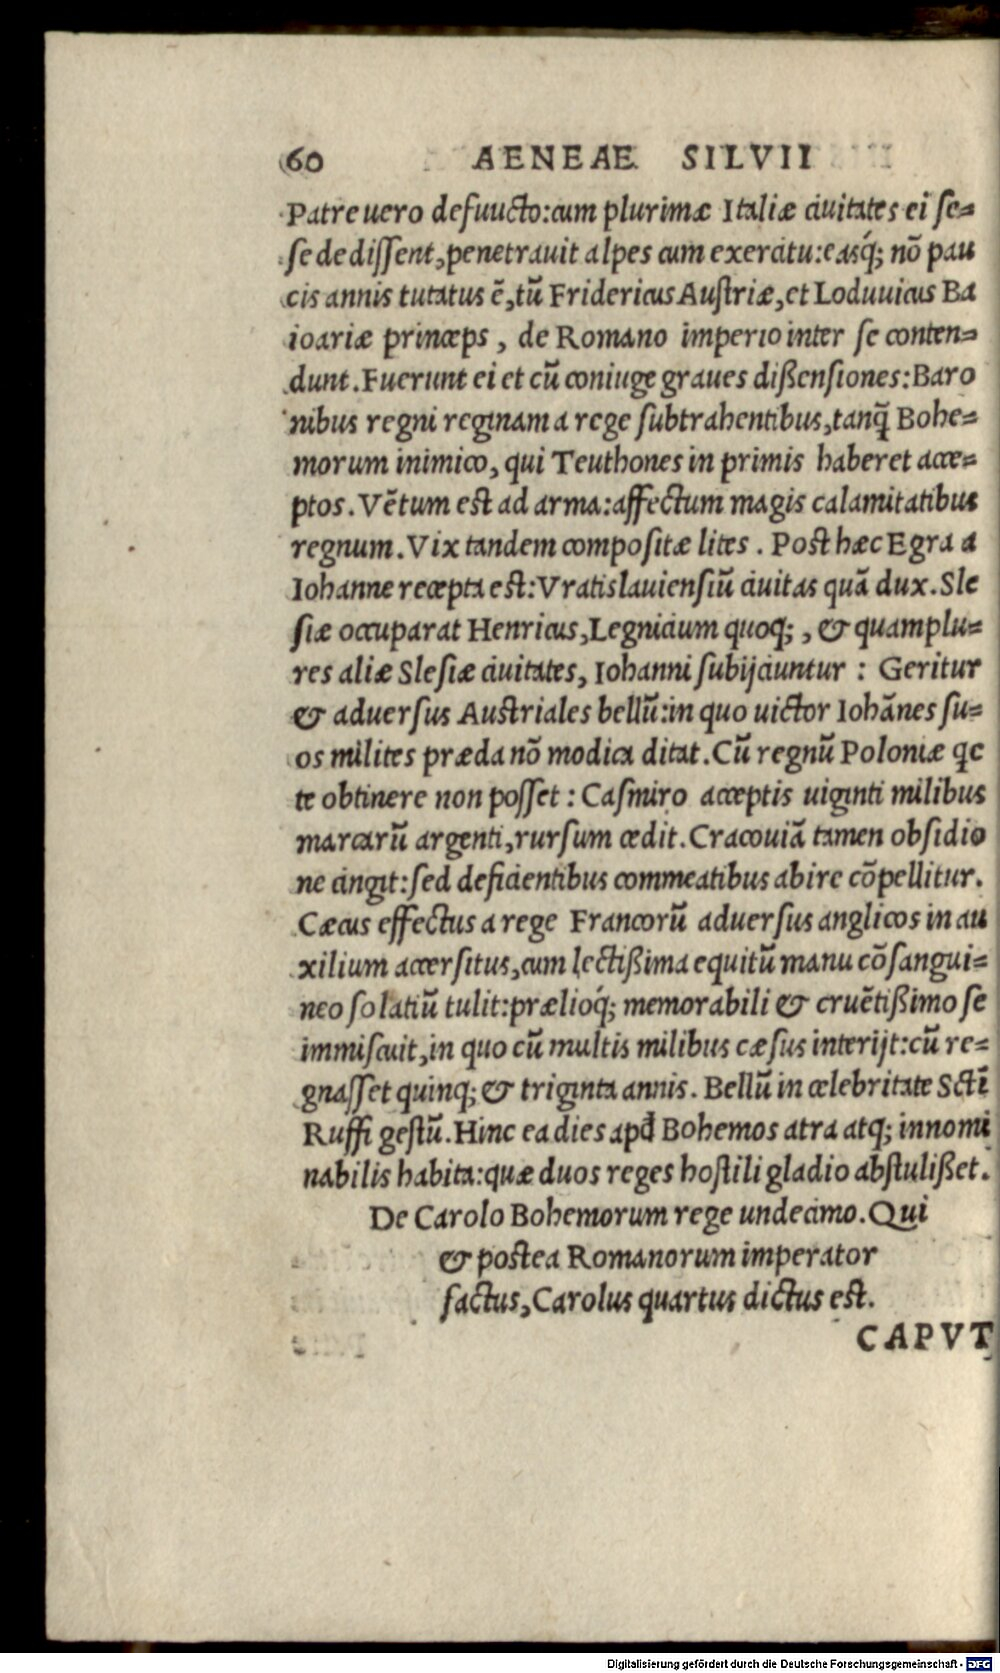 60 AENEAE SILVII
Patre uero defuucto:cum plurimæ Italiæ ciuitates ei se=
se dedissent,penetrauit alpes cum exercitu:easq́; nō pau
cis annis tutatus ē,tū Fridericus Austriæ,et Loduuicus Ba
ioariæ princeps, de Romano imperio inter se conten=
dunt.Fuerunt ei et cū coniuge graues dißensiones:Baro
nibus regni reginam a rege subtrahentibus,tanq̃ Bohe=
morum inimico, qui Teuthones in primis haberet acce=
ptos. Vētum est ad arma:affectum magis calamitatibus
regnum.Vix tandem compositæ lites. Post hæc Egra a
Iohanne recepta est:Vratislauiensiū ciuitas quā dux.Sle
siæ occuparat Henricus,Legnicium quoq;, & quamplu=
res aliæ Slesiæ ciuitates, Iohanni subijciuntur : Geritur
& aduersus Austriales bellū:in quo uictor Iohānes su=
os milites præda nō modica ditat.Cū regnū Poloniæ qe
te obtinere non posset : Casmiro acceptis uiginti milibus
marcarū argenti,rursum cedit.Cracouiā tamen obsidio
ne cingit:sed deficientibus commeatibus abire cōpellitur.
Cæcus effectus a rege Francorū aduersus anglicos in au
xilium accersitus,cum lectißima equitū manu cōsangui=
neo solatiū tulit:prælioq́; memorabili & cruētißimo se
immiscuit,in quo cū multis milibus cæsus interijt:cū re=
gnasset quinq; & triginta annis. Bellū in celebritate Sctī
Ruffi gestū.Hinc ea dies apđ Bohemos atra atq; innomi
nabilis habita:quæ duos reges hostili gladio abstulißet.
De Carolo Bohemorum rege undecimo.Qui
& postea Romanorum imperator
factus,Carolus quartus dictus est.
CAPVT
Digitalisierung gefördert durch die Deutsche Forschungsgemeinschaft - DFG